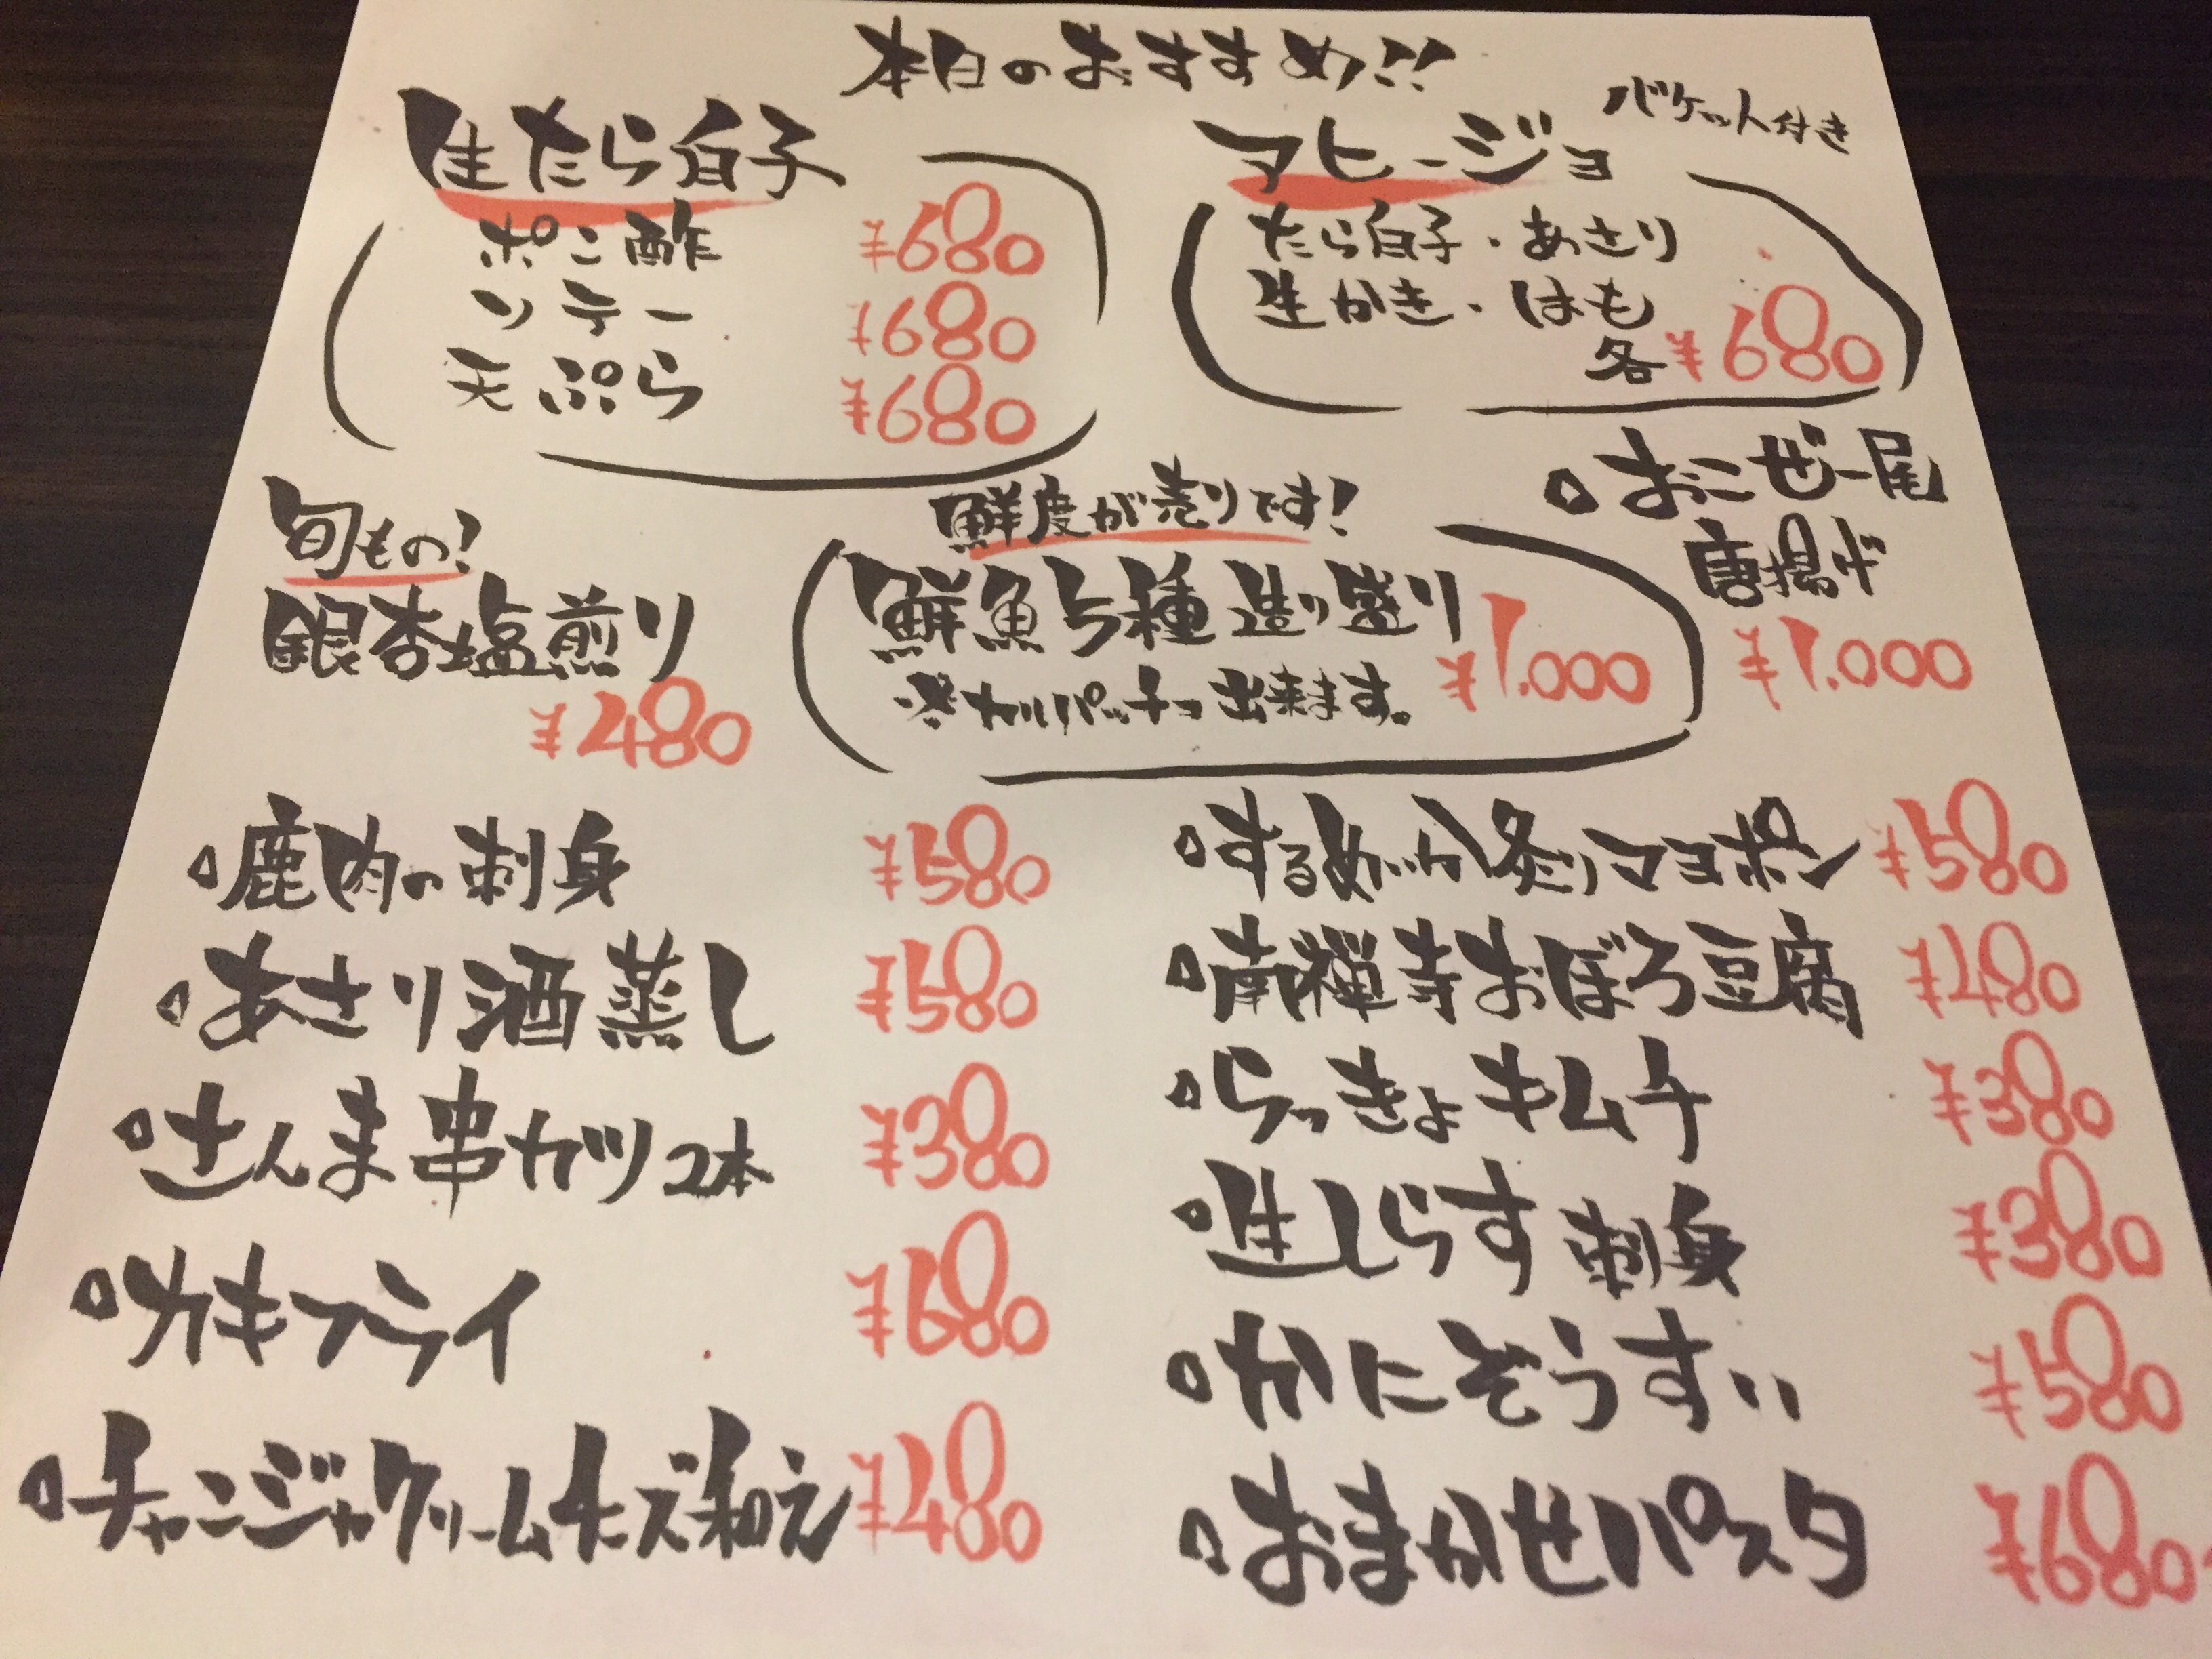 本日のおすすめ!!
生たら白子
ポン酢 ¥680
ソテー ¥680
天ぷら ¥680
アヒージョ バケット付き
たら白子・あさり
生かき・はも
各¥680
旬もの!
銀杏塩煎り
¥480
鮮度が売りです!
鮮魚5種造り盛り
※カルパッチョ出来ます。 ¥1.000
おこぜ一尾
唐揚げ
¥1.000
鹿肉の刺身 ¥580
あさり酒蒸し ¥580
さんま串カツ2本 ¥380
カキフライ ¥680
チャンジャクリームチーズ和え ¥480
するめいか炙りマヨポン ¥580
南禅寺おぼろ豆腐 ¥480
らっきょキムチ ¥380
生しらす刺身 ¥380
かにぞうすい ¥580
おまかせパスタ ¥680